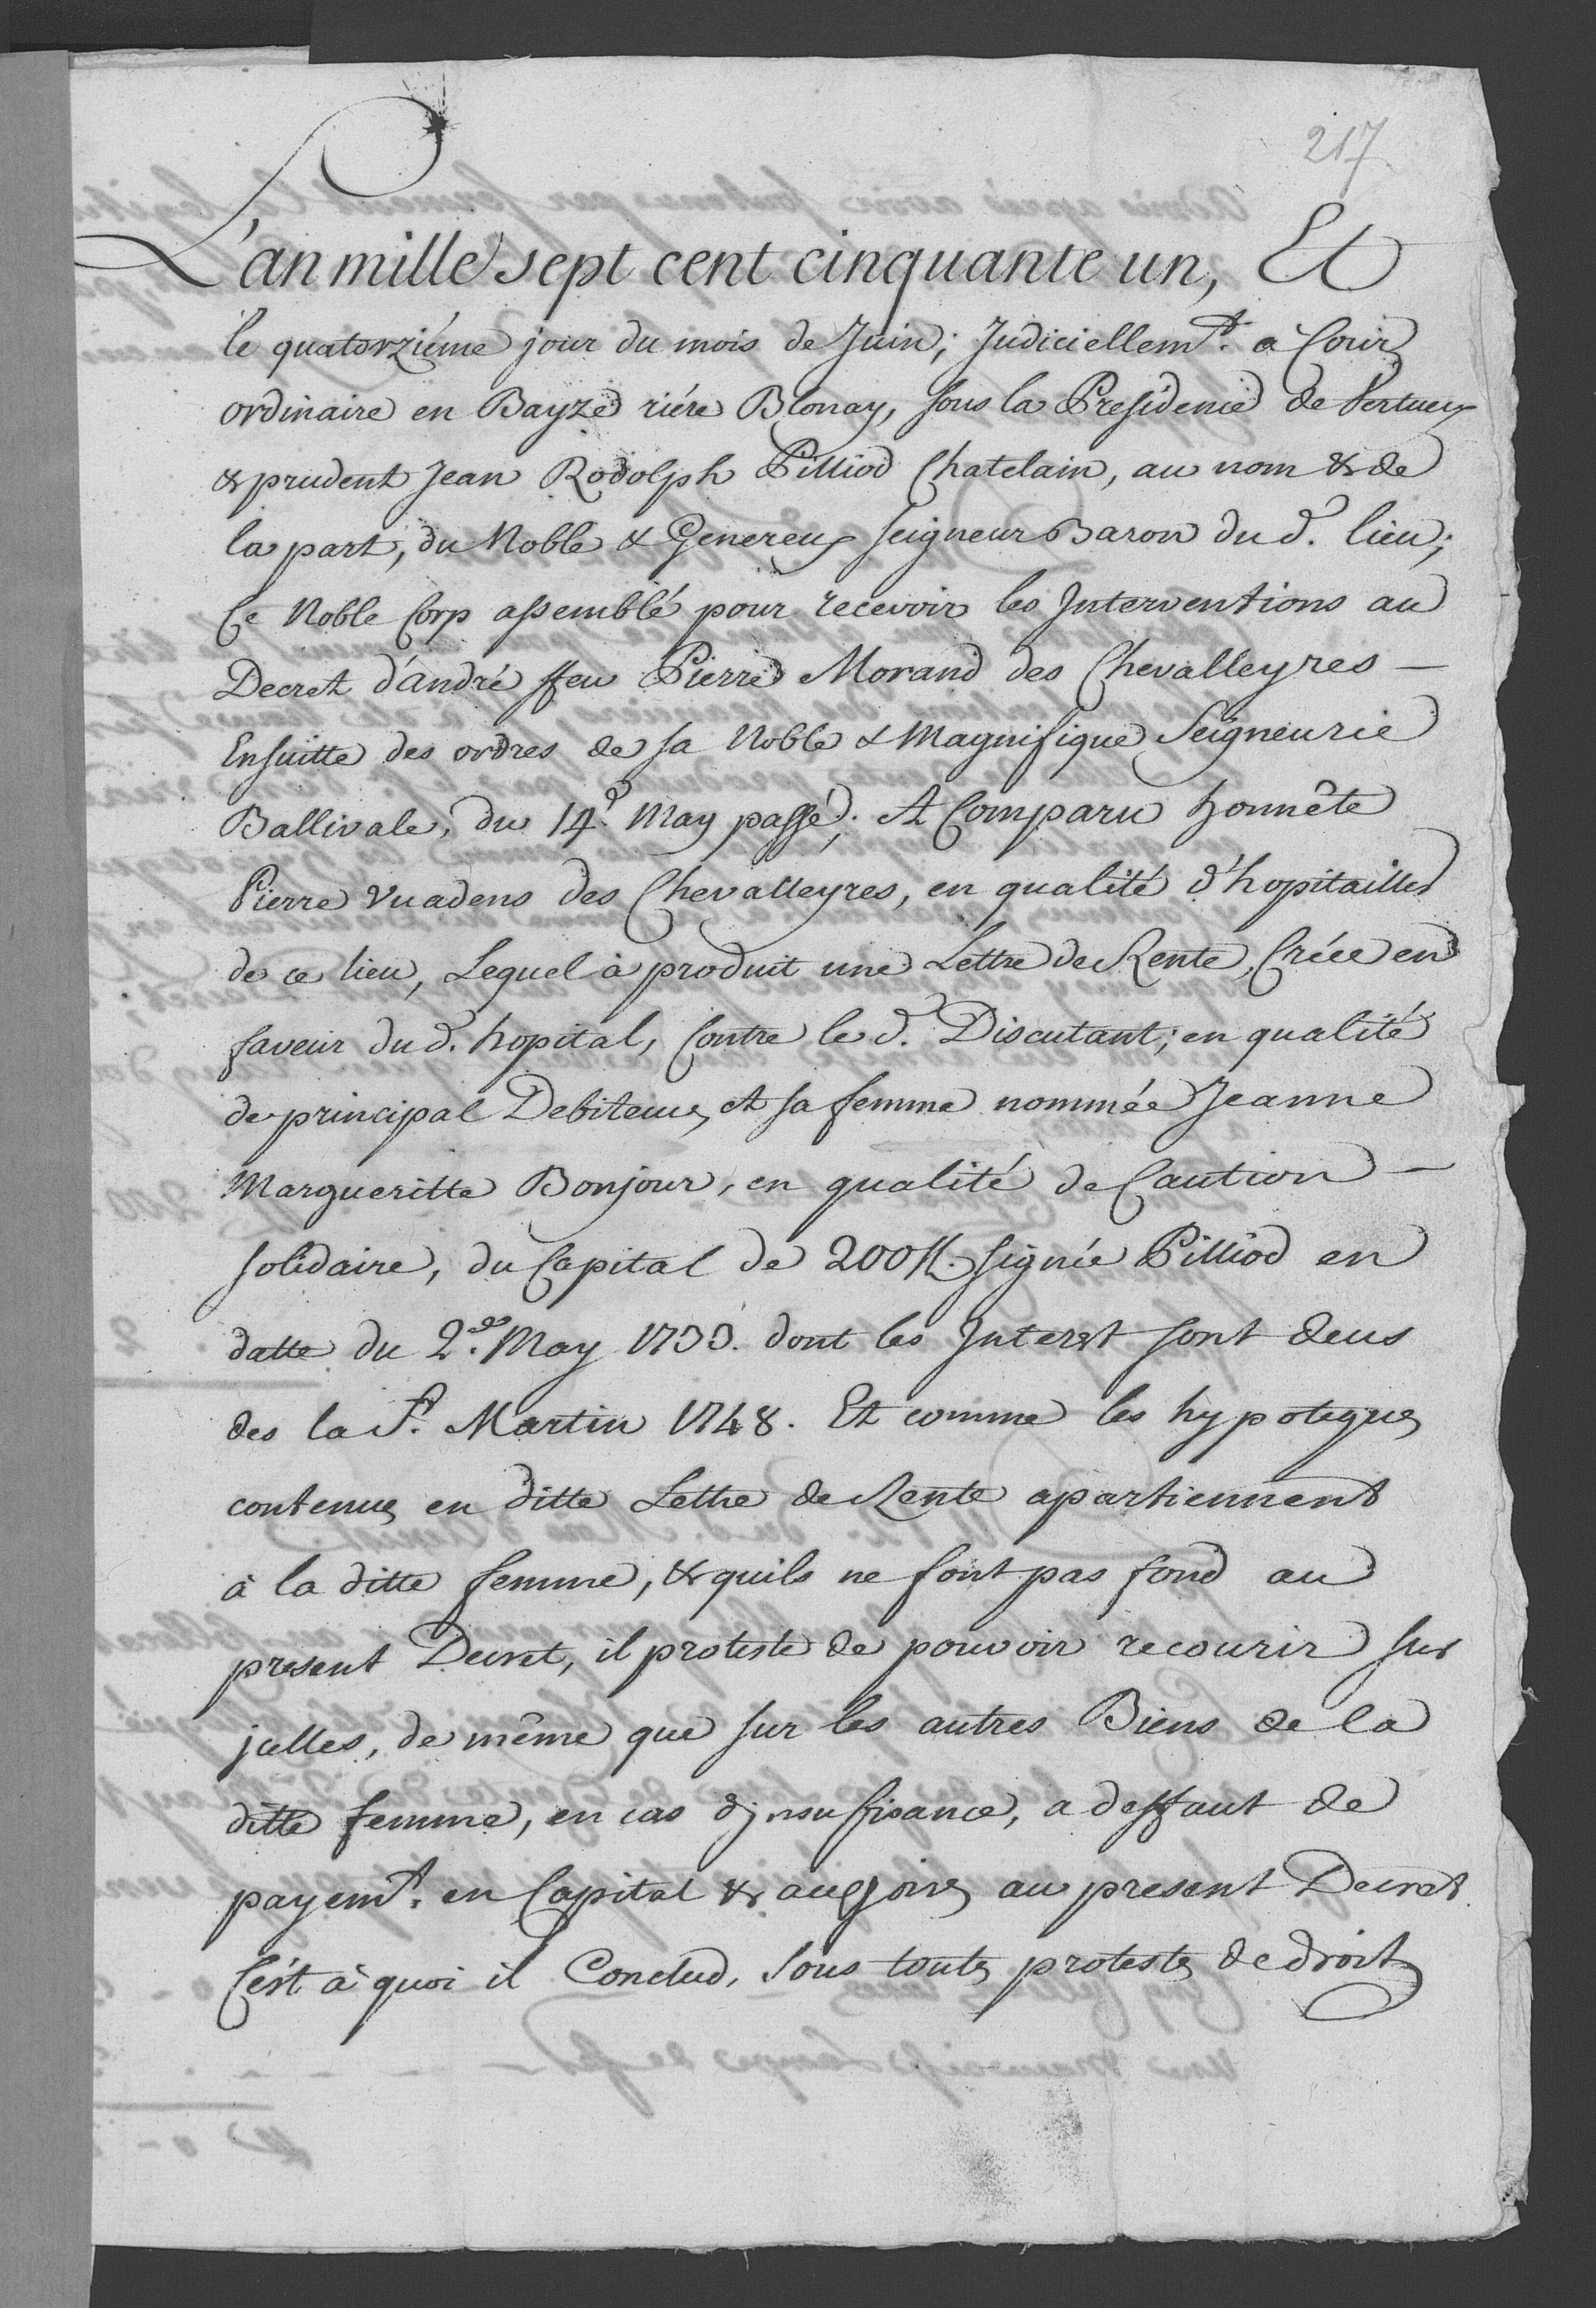 217
L'an mille sept cent cinquante un, Et
le quatorziéme jour du mois de Juin; Judiciellemt. a Cour
ordinaire en Bayze riére Blonay, sous la Presidence de Vertueux
& prudent Jean Rodolph Pilliod Chatelain, au nom & de
la part, du Noble & Genereux seigneur Baron du d. lieu;
Ce Noble Corp assemblé pour recevoir les Interventions au
Decret d'andré ffeu Pierre Morand des Chevalleyres —
Ensuitte des ordres de sa Noble & Magnifique Seigneurie
Ballivale, du 14e. May passé; A Comparu honnête
Pierre Vuadens des Chevalleyres, en qualité d'hopitailler
de ce lieu, Lequel à produit une Lettre de Rente, Créée en
faveur du d. hopital, Contre le d. Discutant; en qualité
de principal Debiteur, et sa femme nommée Jeanne
Margueritte Bonjour, en qualité de Caution —
solidaire, du Capital de 200 ff. signée Pilliod en
datte du 2de. May 1733. dont les Interest sont deus
des la St. Martin 1748. Et comme les hypoteques
contenues en ditte Lettre de Rente apartiennent
à la ditte femme, & quils ne font pas fond au
present Decret, il proteste de pouvoir recourir sur
jcelles, de même que sur les autres Biens de la
ditte femme, en cas d'jnsuffisance, a deffaut de
payemt. en Capital & au present Decret.
C'ést à quoi il Conclud, sous toutes protestes de droit